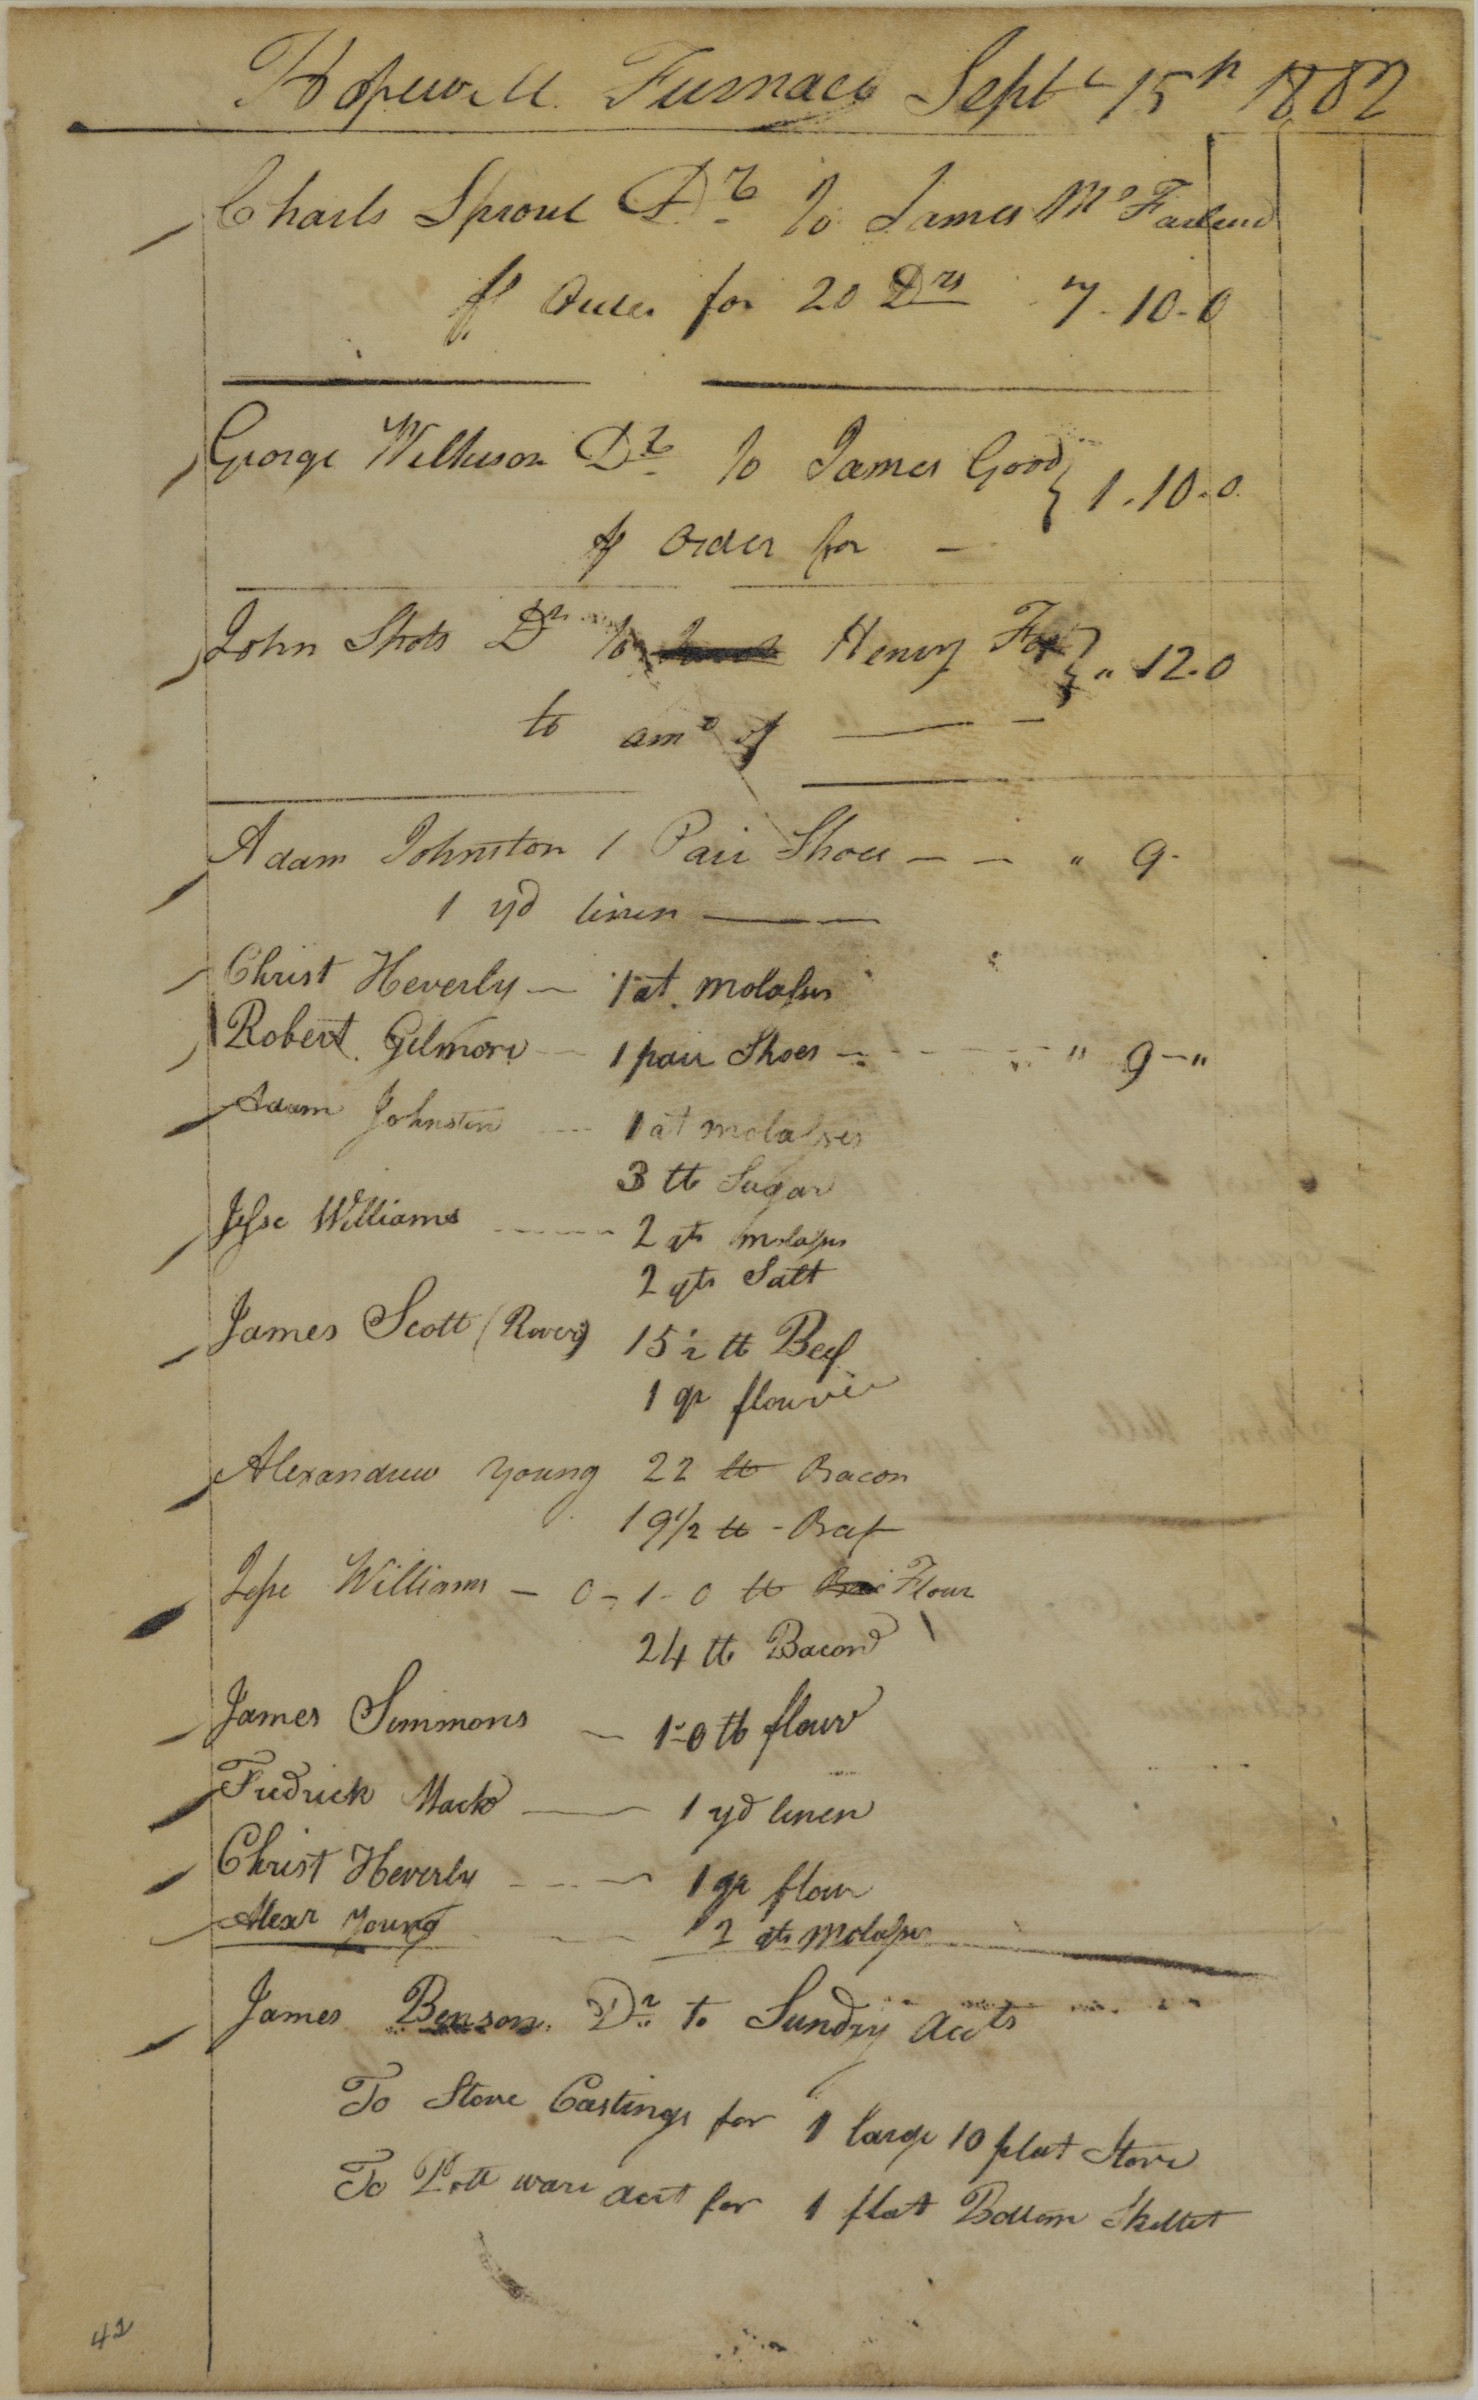 Hopewell Furnace Septr 15th 1802
Charls Sproul Dr to James McFarlend
pr Order for 20 Drs 7-10-0
George Wilkison Dr to James Good } 1-10-0
pr Order for —
John Shots Dr to Henry Fox } " 12-0
to amo of — —
Adam Johnston 1 Pair Shoes — — " 9-
1 yd linen — —
Christ Heverly — 1 qt. molasses
Robert Gilmore — 1 pair Shoes — - - - - " 9-"
Adam Johnston --- 1 qt molasses
3 lb Sugar
Jesse Williams ----- 2 qts molasses
2 qts Salt
James Scott (River) 15 1/2 lb Beef
1 qr flour
Alexandrew Young 22 lb Bacon
19 1/2 lb - Beef
Jesse Williams — 0-1-0 lb Flour
24 lb Bacon
James Simmons — 1-0 lb flour
Fredrick Mack — 1 yd linen
Christ Heverly --- 1 qr flour
Alexr Young --- 2 qts molasses
James Benson. Dr to Sundry accts
To Stove Castings for 1 large 10 plat Stove
To Pott ware acct for 1 flat Bottom Skellet
42